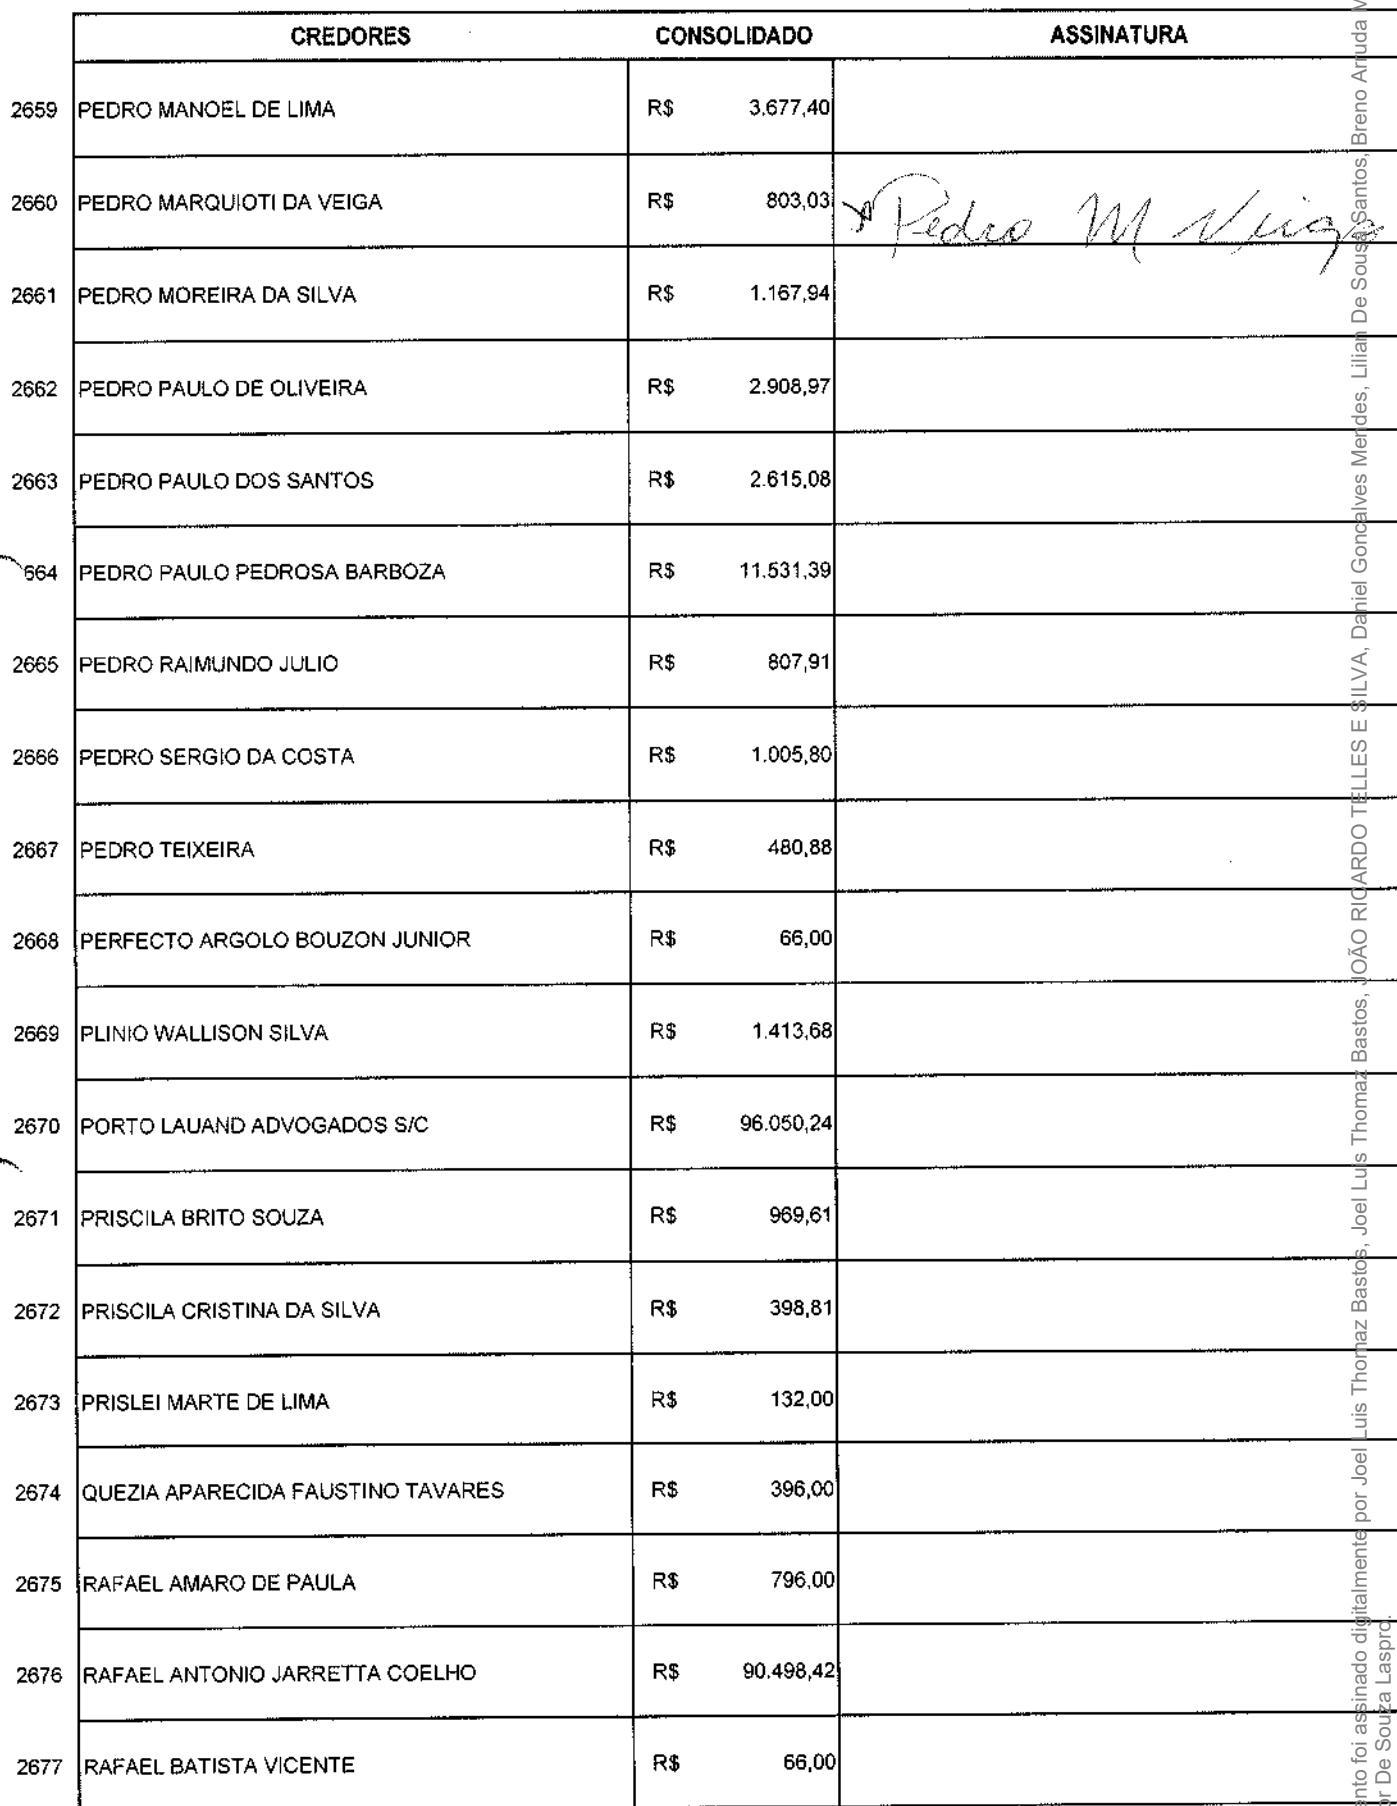 CREDORES CONSOLIDADO ASSINATURA
2659 PEDRO MANOEL DE LIMA R$ 3.677,40
2660 PEDRO MARQUIOTI DA VEIGA R$ 803,03 Pedro M Veiga
2661 PEDRO MOREIRA DA SILVA R$ 1.167,94
2662 PEDRO PAULO DE OLIVEIRA R$ 2.908,97
2663 PEDRO PAULO DOS SANTOS R$ 2.615,08
664 PEDRO PAULO PEDROSA BARBOZA R$ 11.531,39
2665 PEDRO RAIMUNDO JULIO R$ 807,91
2666 PEDRO SERGIO DA COSTA R$ 1.005,80
2667 PEDRO TEIXEIRA R$ 480,88
2668 PERFECTO ARGOLO BOUZON JUNIOR R$ 66,00
2669 PLINIO WALLISON SILVA R$ 1.413,68
2670 PORTO LAUAND ADVOGADOS S/C R$ 96.050,24
2671 PRISCILA BRITO SOUZA R$ 969,61
2672 PRISCILA CRISTINA DA SILVA R$ 398,81
2673 PRISLEI MARTE DE LIMA R$ 132,00
2674 QUEZIA APARECIDA FAUSTINO TAVARES R$ 396,00
2675 RAFAEL AMARO DE PAULA R$ 796,00
2676 RAFAEL ANTONIO JARRETTA COELHO R$ 90.498,42
2677 RAFAEL BATISTA VICENTE R$ 66,00
nto foi assinado digitalmente por Joel Luis Thomaz Bastos, Joel Luis Thomaz Bastos, JOÃO RICARDO TELLES E SILVA, Daniel Goncalves Mendes, Lilian De Sousa Santos, Breno Arruda M
or De Souza Laspro.